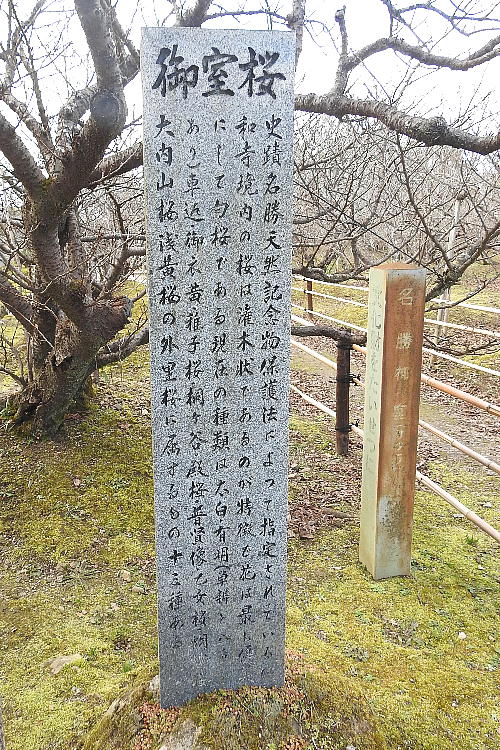 御室桜
史蹟名勝天然記念物保護法によつて指定されている仁
和寺境内の桜は灌木状であるのが特徴で花は最も優
にして匂桜である現在の種類は太白有明(単弁と八重
あり)車返御衣黄稚子桜桐ヶ谷殿桜普賢像乙女桜胡蝶
大内山桜浅黄桜の外里桜に属するもの十三種ある
名勝 御室
をたいせつに